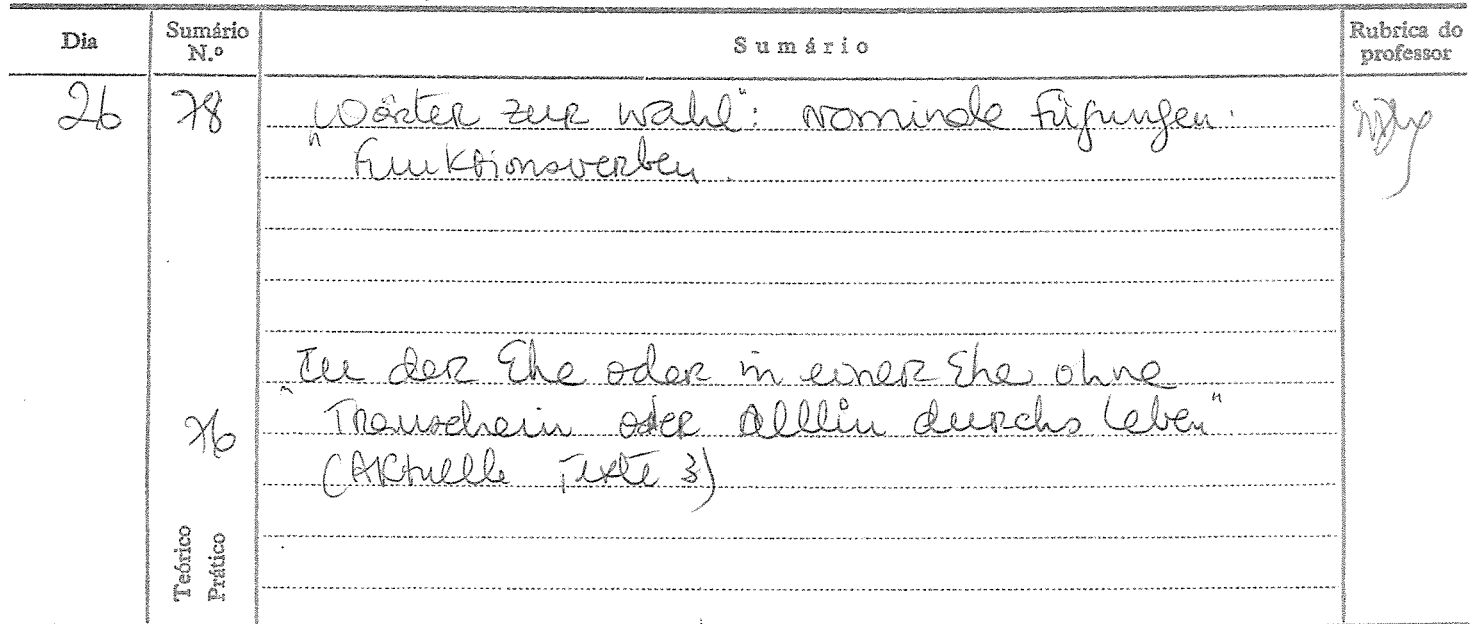 Dia Sumário N.º Sumário Rubrica do professor
26 78 "Wörter zur Wahl": nominale Fügungen.
Funktionsverben.
"In der Ehe oder in einer Ehe ohne
76 Trauschein oder allein durchs Leben"
(Aktuelle Texte 3)
Teórico
Prático